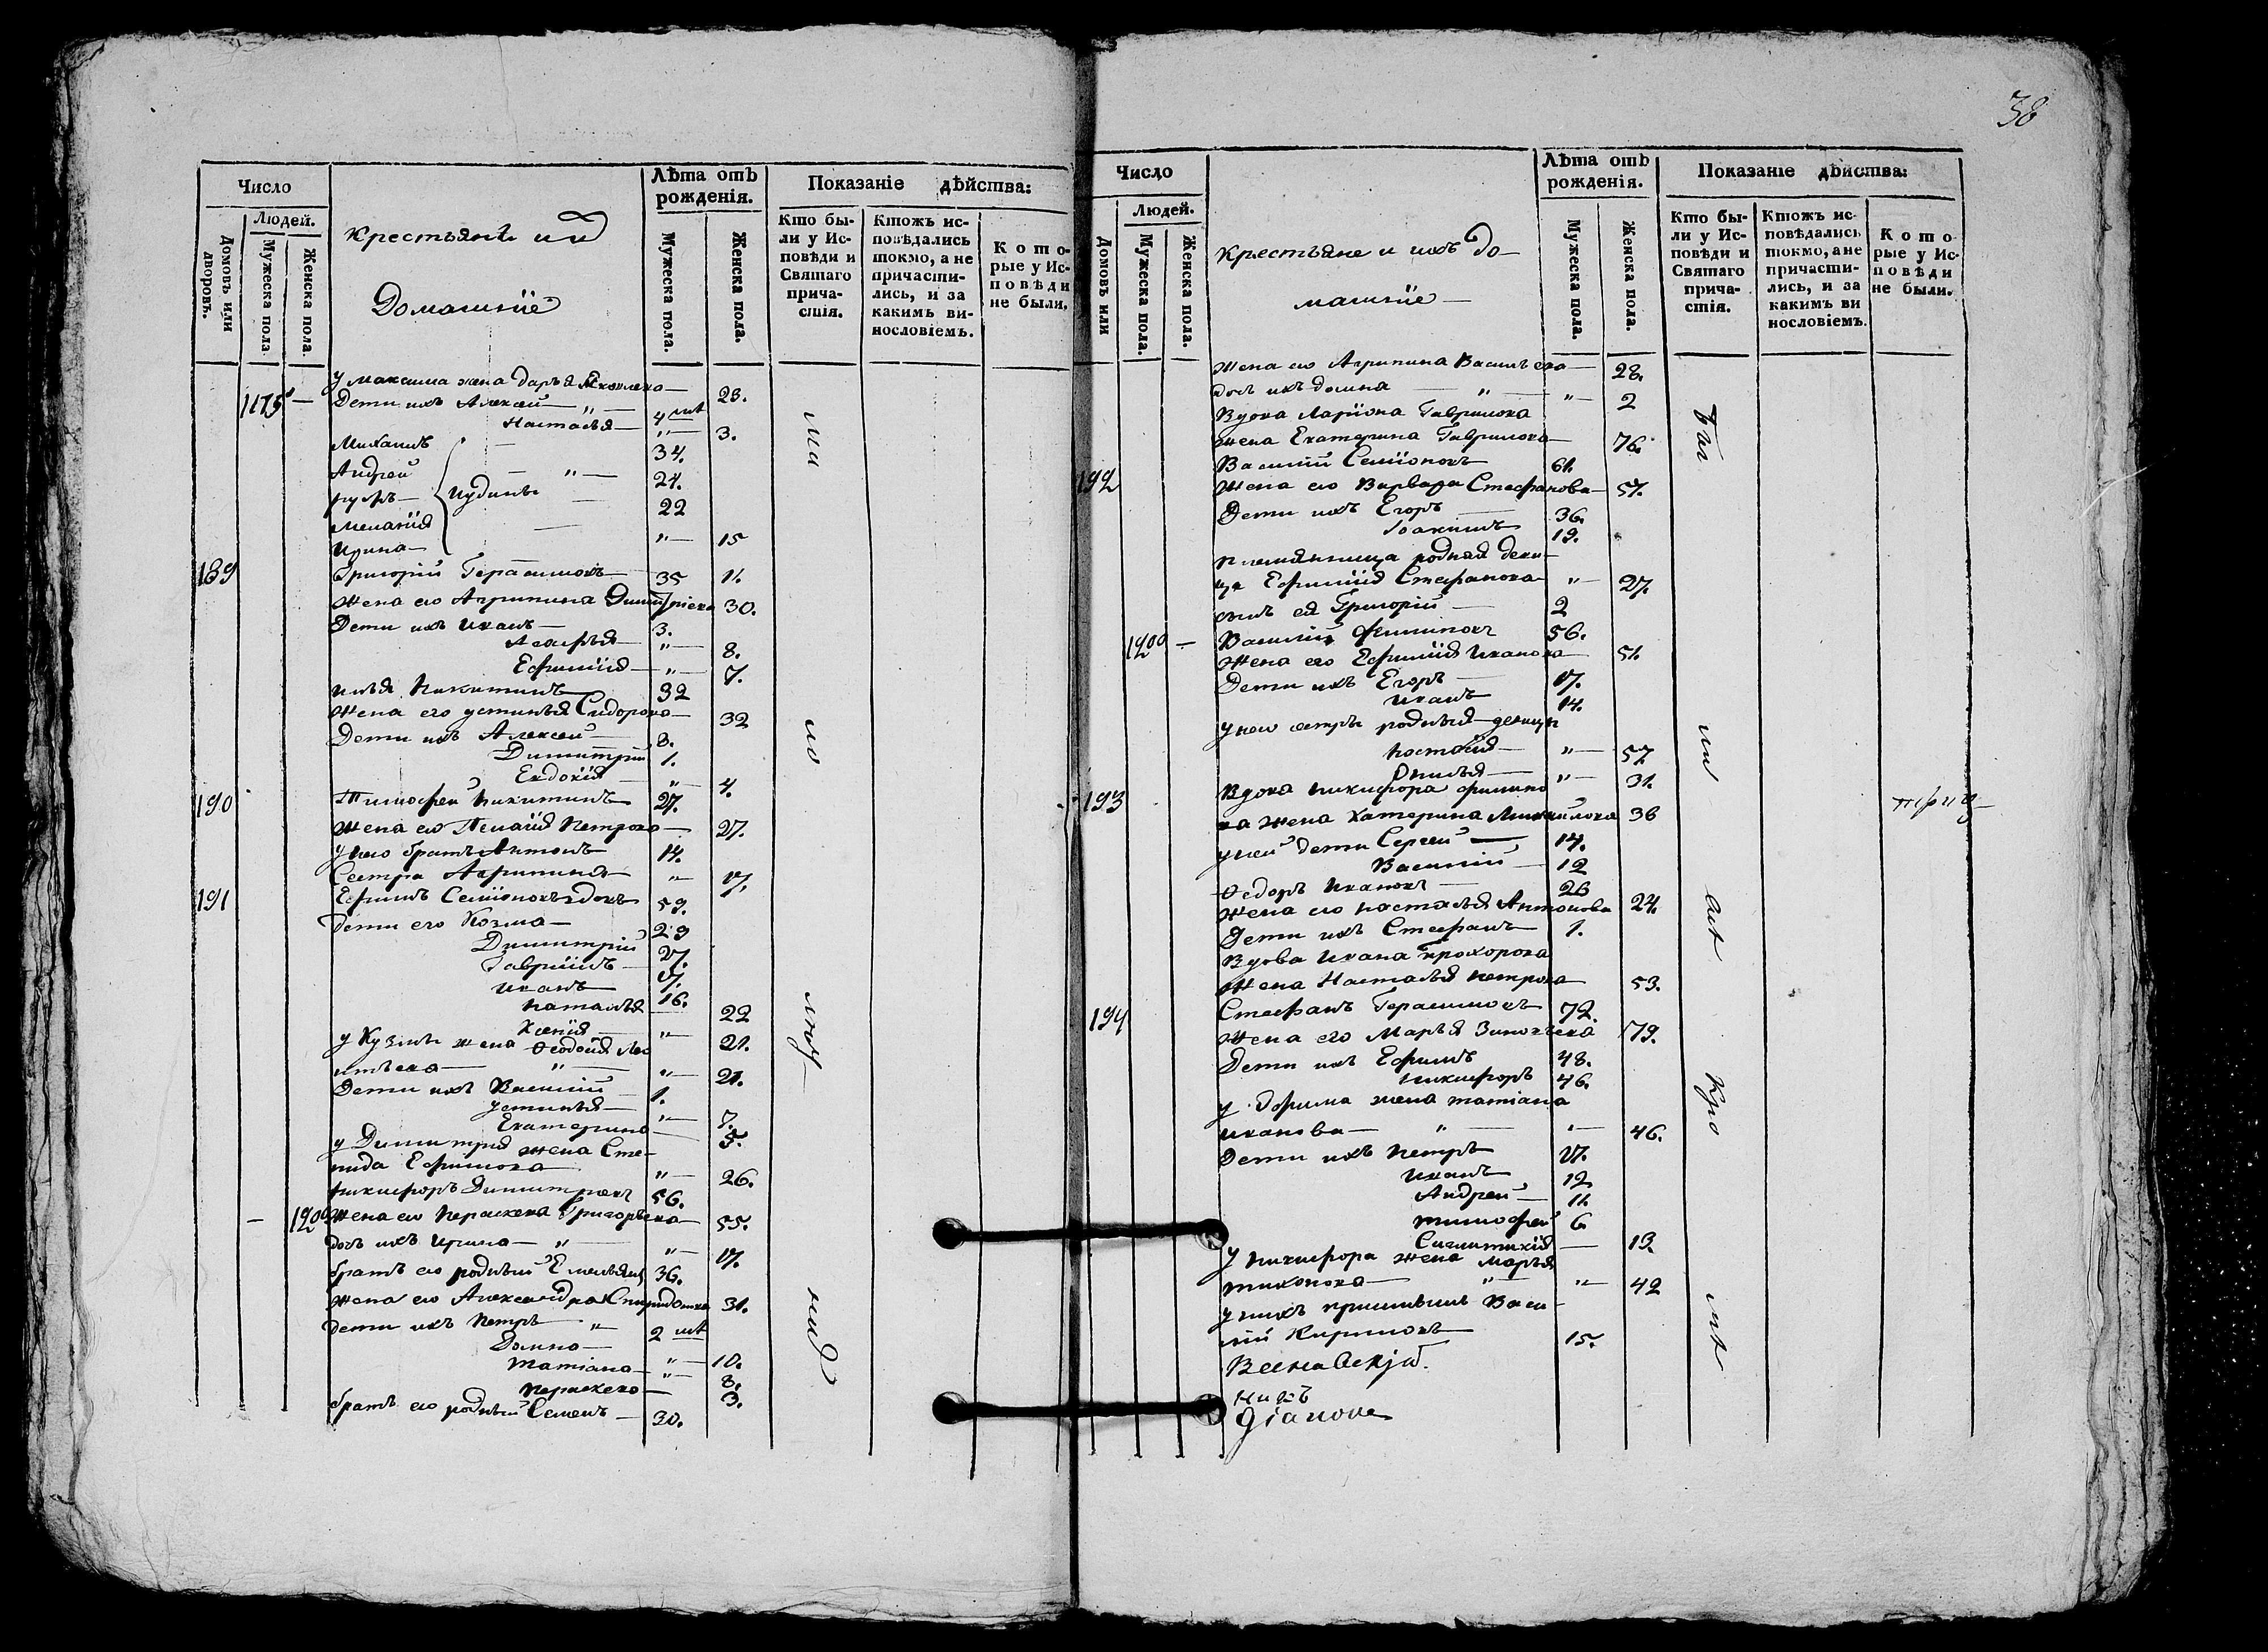 38
Число
Людей.
Домовъ или дворовъ.
Мужеска пола
Женска пола.
Крестьянѣ и их
Домашніе
Лѣта отъ рожденія.
Мужеска пола.
Женска пола.
Показаніе дѣйства:
Кто бы-
ли у Ис-
повѣди и
Святаго
прича-
стія.
Ктожъ ис-
повѣдались
токмо, а не
причасти-
лись, и за
какимъ ви-
нословіемъ.
К о т о-
рые у Ис-
п о в ѣ д и
не были.
у Максима жена Дарья Яковлева — 28.
1175 — Дети ихъ Алексей — " — 4
Наталья — " — 3.
Михаилъ — 34.
Андрей — " — 24.
Иудины — 22
Меланія
Ирина — " — 15
189 Григорій Герасимовъ 35 11.
жена его Агрипина Димитріева 30.
Дети ихъ Иванъ — 3.
Агафья — " — 8.
Ефимія — " — 7.
Илья Никитинъ 32
Жена его Устинья Сидорова — 32
Дети ихъ Алексей 8.
Димитрій 1.
Евдокія — " — 4.
190 Тимофей Никитинъ 27.
Жена его Пелагія Петрова — 27.
у него братъ Антонъ 14.
Сестра Агрипина — " — 17.
191 Ефимъ Семіоновъ вдовъ 59.
дети его Козма — 29
Димитрій 27.
Гавріилъ — 17.
Иванъ 16.
Наталья 22
Ксенія — " — 21.
у Кузмы жена Феодосія Лео
нтьева — " — 21.
Дети ихъ Василій 1.
Устинья — " — 7.
Екатерина 5.
у Димитрія жена Сте-
пида Ефимова " — 26.
Никифоръ Димитріевъ 56.
— 120 Жена его Параскева Григорьева — 55.
дочь ихъ Ирина — " — 17.
братъ его родный Емельянъ 36.
Жена его Александра Спиридонова 31.
дети ихъ Петръ " 2
Домна — " — 10.
Татіана — " — 8.
Параскева — 3.
братъ его родный Семенъ — 30.
Число
Людей.
Домовъ или
Мужеска пола.
Женска пола.
Крестьяне и ихъ до-
машніе —
Лѣта отъ
рожденія.
Мужеска пола.
Женска пола.
Показаніе дѣйства:
Кто бы-
ли у Ис-
повѣди и
Святаго
прича-
стія.
Ктожъ ис-
повѣдались
токмо, а не
причасти-
лись, и за
какимъ ви
нословіемъ.
К о т о
рые у Ис-
п о в ѣ д и
не были.
Жена его Агрипина Васильева — 28.
дочь ихъ Домна — " — " — 2
Вдова Ларіона Гаврилова
жена Екатерина Гаврилова — 76.
192 Василій Семіоновъ 61.
Жена его Варвара Стефанова — 57.
Дети ихъ Егоръ — 36.
Іоакимъ 19.
Племянница родная деви-
ца Ефимія Стефанова " — 27.
сынъ ея Григорій — 2
1200 — Василій Филиповъ 56.
Жена его Ефимія Иванова — 51.
Дети ихъ Егоръ — 17.
Иванъ 14.
у него сестры родныя девицы
— " — 57
— " — 31.
193 Вдова Никифора Филипо
ва жена Катерина Михайлова 36
у ней дети Сергей — 14.
Василій — 12
Федоръ Ивановъ — 26
Жена его Наталья Антонова 24.
Дети ихъ Стефанъ 1.
Вдова Ивана Прохорова
Жена Наталья Петрова 53.
194 Стефанъ Герасимовъ 72.
Жена его Марья Зиновьева 79.
Дети ихъ Ефимъ 48.
Никифоръ 46.
у Ефима жена Татіана
Иванова — " — " — 46.
Дети ихъ Петръ 17.
Иванъ 12
Андрей — 11.
Тимофей 6
— 13.
у Никифора жена Марья
Тихонова — " — " — 42
у нихъ Васи-
лій Кириловъ 15.